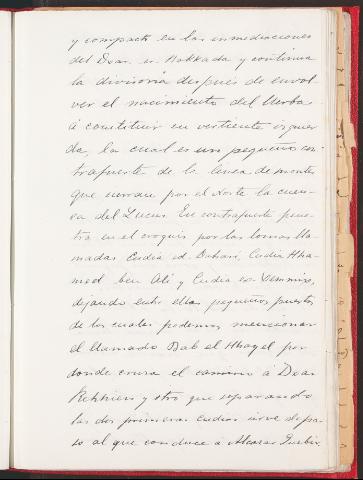 y compacto en las inmediaciones
del Doar u. Hokkada y continua
la divisoria después de envol
ver el nacimiento del Uerba
á constituir su vertiente izquier
da, la cual es un pequeño con
trafuerte de la linea de montes
que cierran por el Norte la cuen-
ca del Lucus. Su contrafuerte pene-
tra en el croquis por las lomas lla
madas Cudia el. Cudia Aha
med ben Ali y Cudia es Semmiro,
dejando entre ellas pequeños puertos
de los cuales podemos mencionar
el llamado Bab el Hhayel por
donde cruza el camino á Doar
Rekkien y otro que separando
las dos primeras Cudias sirve de pa-
so al que conduce á Alcazar Quebir,